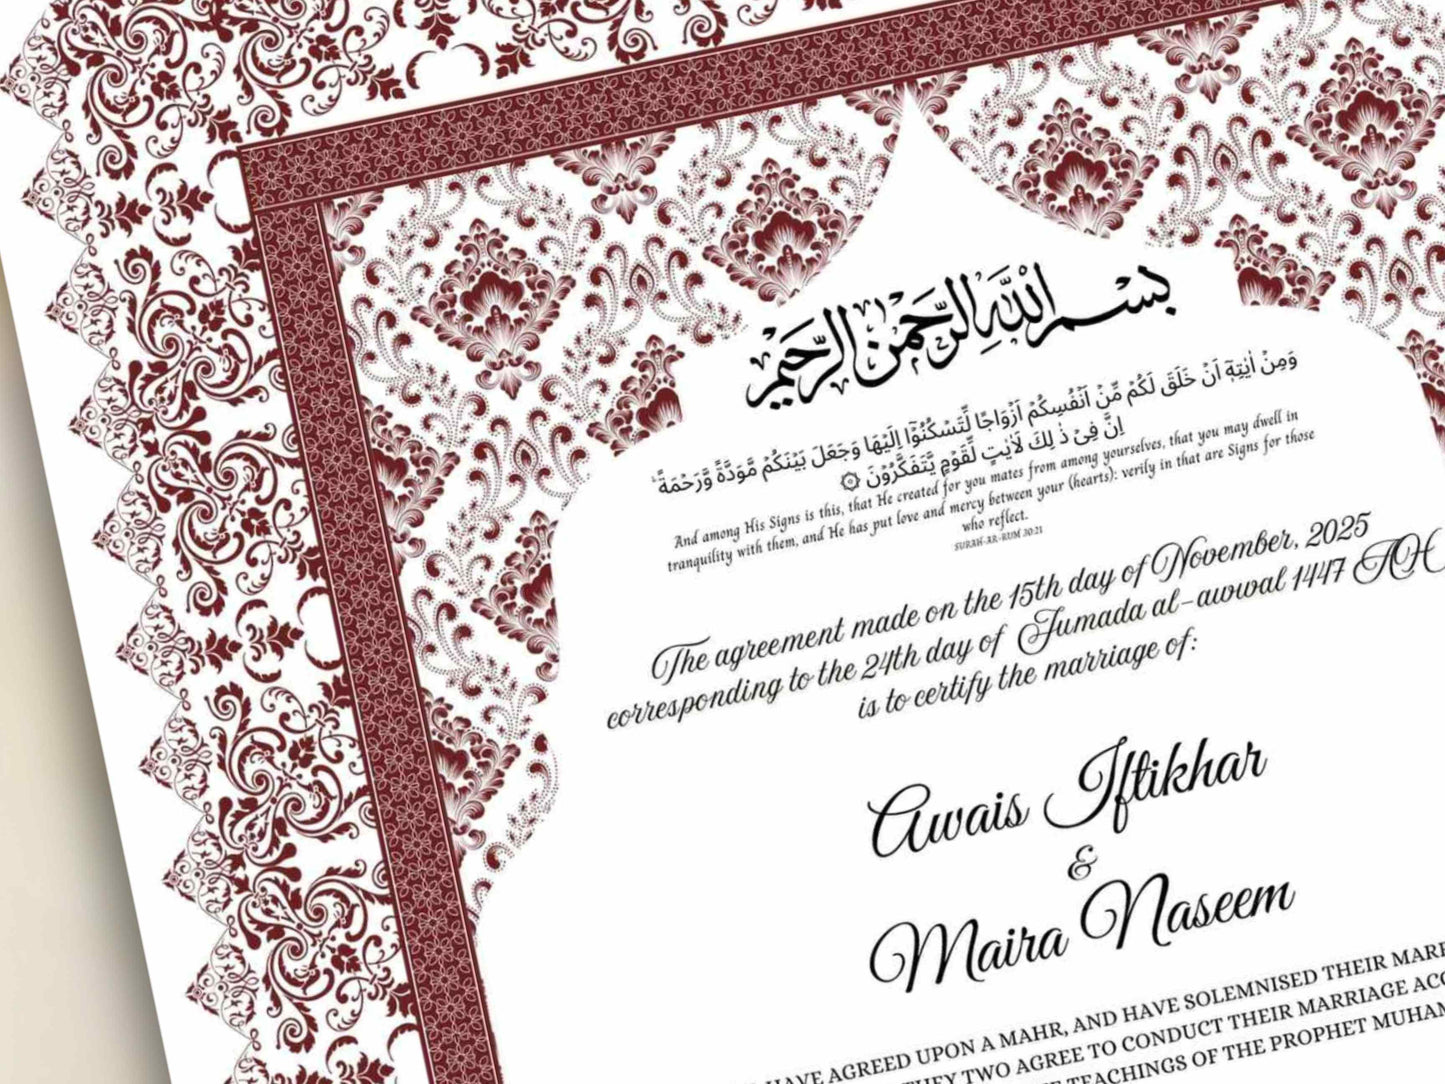 بسم الله الرحمن الرحيم
وَمِنْ اٰيٰتِهٖٓ اَنْ خَلَقَ لَكُمْ مِّنْ اَنْفُسِكُمْ اَزْوَاجًا لِّتَسْكُنُوْٓا اِلَيْهَا وَجَعَلَ بَيْنَكُمْ مَّوَدَّةً وَّرَحْمَةً ؕ
اِنَّ فِىْ ذٰ لِكَ لَاٰيٰتٍ لِّقَوْمٍ يَّتَفَكَّرُوْنَ ۞
And among His Signs is this, that He created for you mates from among yourselves, that you may dwell in
tranquility with them, and He has put love and mercy between your (hearts): verily in that are Signs for those
who reflect.
SURAH-AR-RUM 30:21
The agreement made on the 15th day of November, 2025
corresponding to the 24th day of Jumada al-awwal 1447 AH
is to certify the marriage of:
Awais Iftikhar
&
Maira Naseem
HAVE AGREED UPON A MAHR, AND HAVE SOLEMNISED THEIR
THEY TWO AGREE TO CONDUCT THEIR MARRIAGE
TEACHINGS OF THE PROPHET